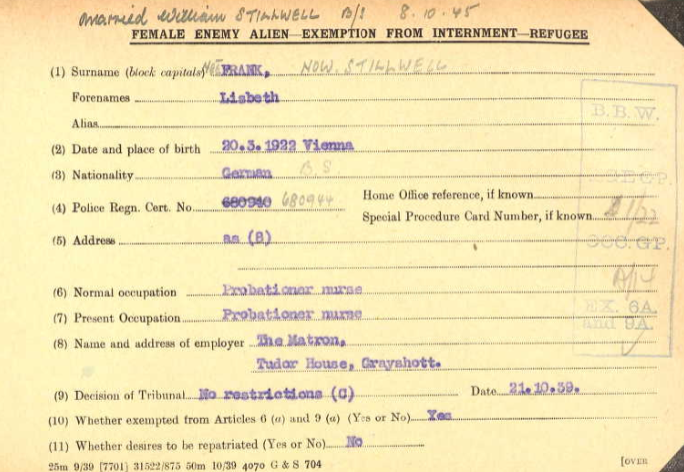 married William STILLWELL B/S 8.10.45
FEMALE ENEMY ALIEN—EXEMPTION FROM INTERNMENT—REFUGEE
(1) Surname (block capitals) NEE FRANK, NOW STILLWELL
Forenames Lisbeth
Alias
(2) Date and place of birth 20.3.1922 Vienna
(3) Nationality German B.S.
(4) Police Regn. Cert. No. 680940 680944 Home Office reference, if known
Special Procedure Card Number, if known
(5) Address as (8)
(6) Normal occupation Probationer nurse
(7) Present Occupation Probationer nurse
(8) Name and address of employer The Matron,
Tudor House, Grayshott.
(9) Decision of Tribunal No restrictions (C) Date 21.10.39.
(10) Whether exempted from Articles 6 (a) and 9 (a) (Yes or No) Yes
(11) Whether desires to be repatriated (Yes or No) No
25m 9/39 [7701] 31522/875 50m 10/39 4070 G & S 704 [OVER
B.B.W.
OCC. GP.
EX. 6A.
and 9A.